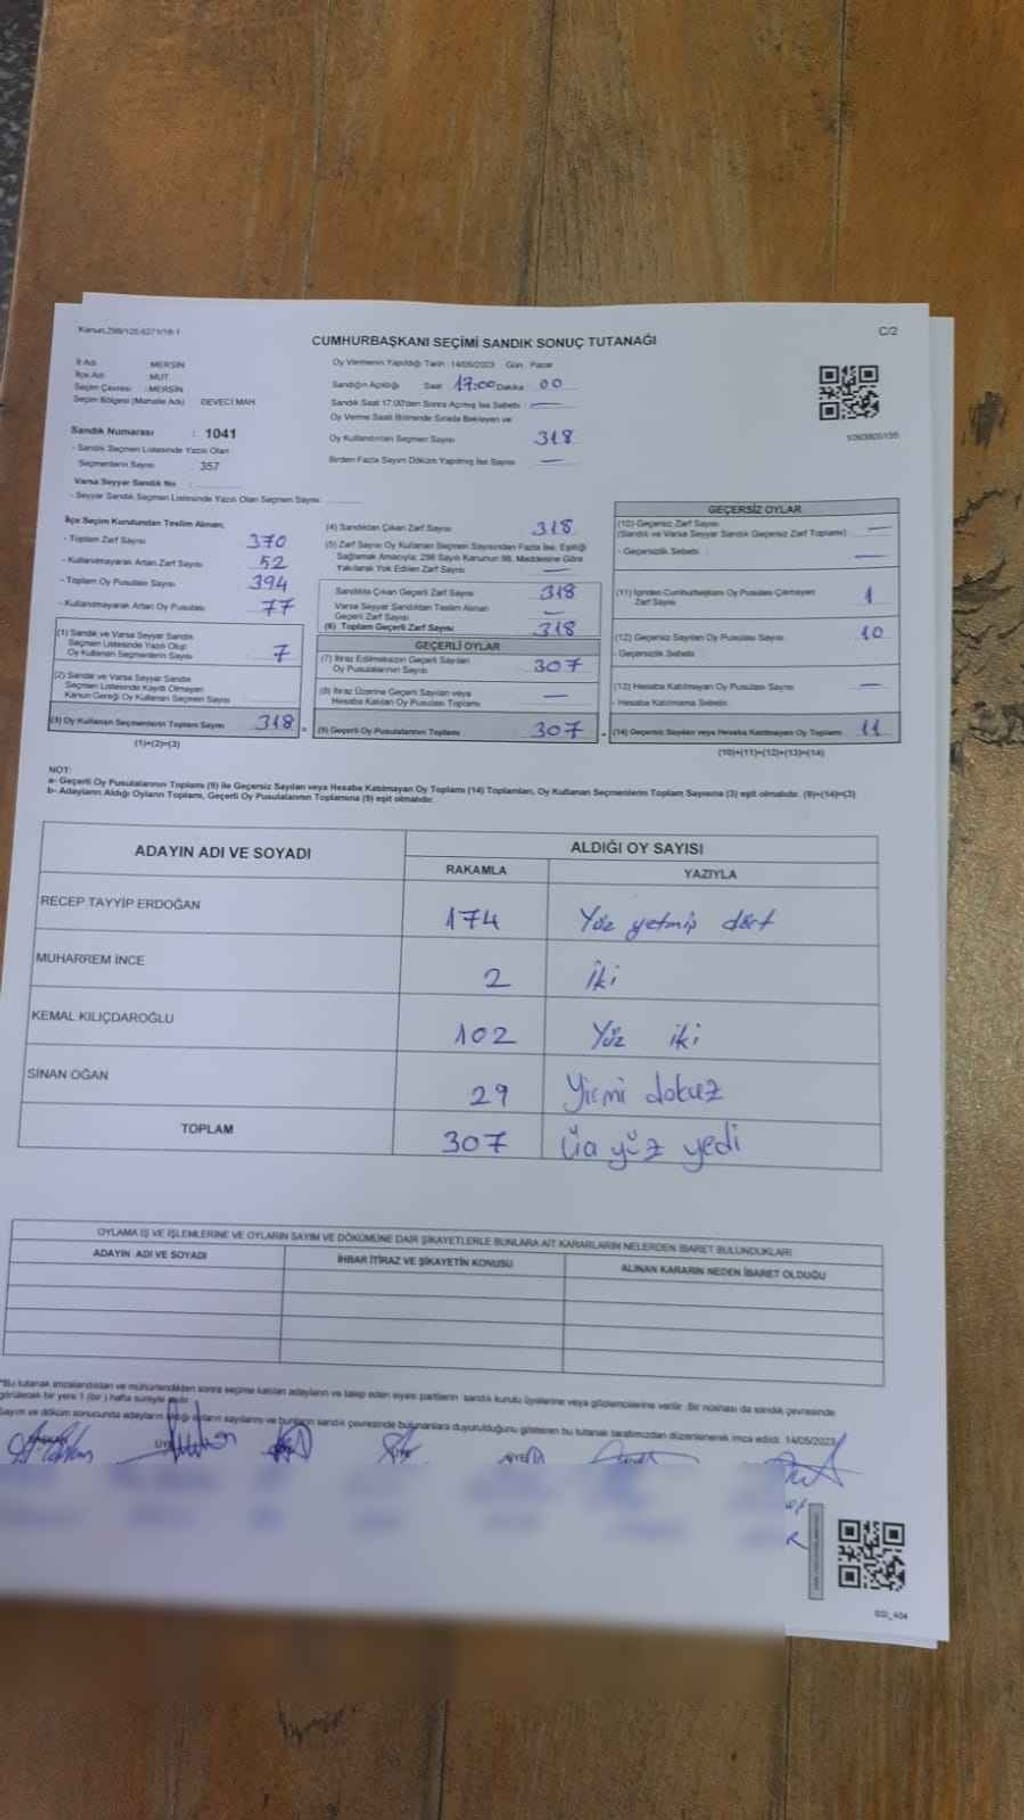 Kanun:298/105-6271/18-1
C/2
CUMHURBAŞKANI SEÇİMİ SANDIK SONUÇ TUTANAĞI
İl Adı : MERSİN
İlçe Adı : MUT
Seçim Çevresi : MERSİN
Seçim Bölgesi (Mahalle Adı) DEVECİ MAH.
Sandık Numarası : 1041
- Sandık Seçmen Listesinde Yazılı Olan
Seçmenlerin Sayısı 357
Varsa Seyyar Sandık No :
- Seyyar Sandık Seçmen Listesinde Yazılı Olan Seçmen Sayısı
Oy Vermenin Yapıldığı Tarih : 14/05/2023 Gün : Pazar
Sandığın Açıldığı Saat 17:00 Dakika 00
Sandık Saat 17.00'den Sonra Açılmış İse Sebebi : —
Oy Verme Saati Bitiminde Sırada Bekleyen ve
Oy Kullandırılan Seçmen Sayısı 318
Birden Fazla Sayım Döküm Yapılmış İse Sayısı —
İlçe Seçim Kurulundan Teslim Alınan;
- Toplam Zarf Sayısı 370
- Kullanılmayarak Artan Zarf Sayısı 52
- Toplam Oy Pusulası Sayısı 394
- Kullanılmayarak Artan Oy Pusulası 77
(1) Sandık ve Varsa Seyyar Sandık
Seçmen Listesinde Yazılı Olup
Oy Kullanan Seçmenlerin Sayısı 7
(2) Sandık ve Varsa Seyyar Sandık
Seçmen Listesinde Kayıtlı Olmayan
Kanun Gereği Oy Kullanan Seçmen Sayısı
(3) Oy Kullanan Seçmenlerin Toplam Sayısı 318
(1)+(2)=(3)
(4) Sandıktan Çıkan Zarf Sayısı 318
(5) Zarf Sayısı Oy Kullanan Seçmen Sayısından Fazla İse, Eşitliği
Sağlamak Amacıyla; 298 Sayılı Kanunun 98. Maddesine Göre
Yakılarak Yok Edilen Zarf Sayısı —
Sandıkta Çıkan Geçerli Zarf Sayısı 318
Varsa Seyyar Sandıktan Teslim Alınan
Geçerli Zarf Sayısı —
(6) Toplam Geçerli Zarf Sayısı 318
GEÇERLİ OYLAR
(7) İtiraz Edilmeksizin Geçerli Sayılan
Oy Pusulalarının Sayısı 307
(8) İtiraz Üzerine Geçerli Sayılan veya
Hesaba Katılan Oy Pusulası Toplamı —
(9) Geçerli Oy Pusulalarının Toplamı 307
GEÇERSİZ OYLAR
(10) Geçersiz Zarf Sayısı
(Sandık ve Varsa Seyyar Sandık Geçersiz Zarf Toplamı) —
- Geçersizlik Sebebi : —
(11) İçinden Cumhurbaşkanı Oy Pusulası Çıkmayan
Zarf Sayısı 1
(12) Geçersiz Sayılan Oy Pusulası Sayısı 10
- Geçersizlik Sebebi
(13) Hesaba Katılmayan Oy Pusulası Sayısı —
- Hesaba Katılmama Sebebi
(14) Geçersiz Sayılan veya Hesaba Katılmayan Oy Toplamı 11
(10)+(11)+(12)+(13)=(14)
NOT:
a- Geçerli Oy Pusulalarının Toplamı (9) ile Geçersiz Sayılan veya Hesaba Katılmayan Oy Toplamı (14) Toplamları, Oy Kullanan Seçmenlerin Toplam Sayısına (3) eşit olmalıdır. (9)+(14)=(3)
b- Adayların Aldığı Oyların Toplamı, Geçerli Oy Pusulalarının Toplamına (9) eşit olmalıdır.
ADAYIN ADI VE SOYADI ALDIĞI OY SAYISI
RAKAMLA YAZIYLA
RECEP TAYYİP ERDOĞAN 174 Yüz yetmiş dört
MUHARREM İNCE 2 İki
KEMAL KILIÇDAROĞLU 102 Yüz iki
SİNAN OĞAN 29 Yirmi dokuz
TOPLAM 307 Üç yüz yedi
OYLAMA İŞ VE İŞLEMLERİNE VE OYLARIN SAYIM VE DÖKÜMÜNE DAİR ŞİKAYETLERLE BUNLARA AİT KARARLARIN NELERDEN İBARET BULUNDUKLARI
ADAYIN ADI VE SOYADI İHBAR İTİRAZ VE ŞİKAYETİN KONUSU ALINAN KARARIN NEDEN İBARET OLDUĞU
*Bu tutanak imzalandıktan ve mühürlendikten sonra seçime katılan adayların ve talep eden siyasi partilerin sandık kurulu üyelerine veya gözlemcilerine verilir. Bir nüshası da sandık çevresinde
görülecek bir yere 1 (bir) hafta süreyle asılır.
Sayım ve döküm sonucunda adayların aldığı oyların sayılarını ve bunların sandık çevresinde bulunanlara duyurulduğunu gösteren bu tutanak tarafımızdan düzenlenerek imza edildi. 14/05/2023